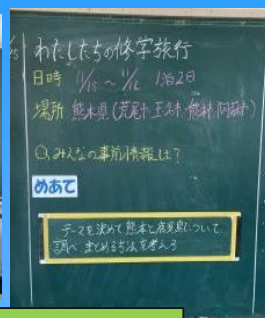 わたしたちの修学旅行
日時 11/15 〜 11/16 1泊2日
場所 熊本県(荒尾市 玉名市 熊本市 阿蘇市)
Q,みんなの事前情報は?
めあて
テーマを決めて熊本と鹿児島について、
調べまとめる方法を考えよう